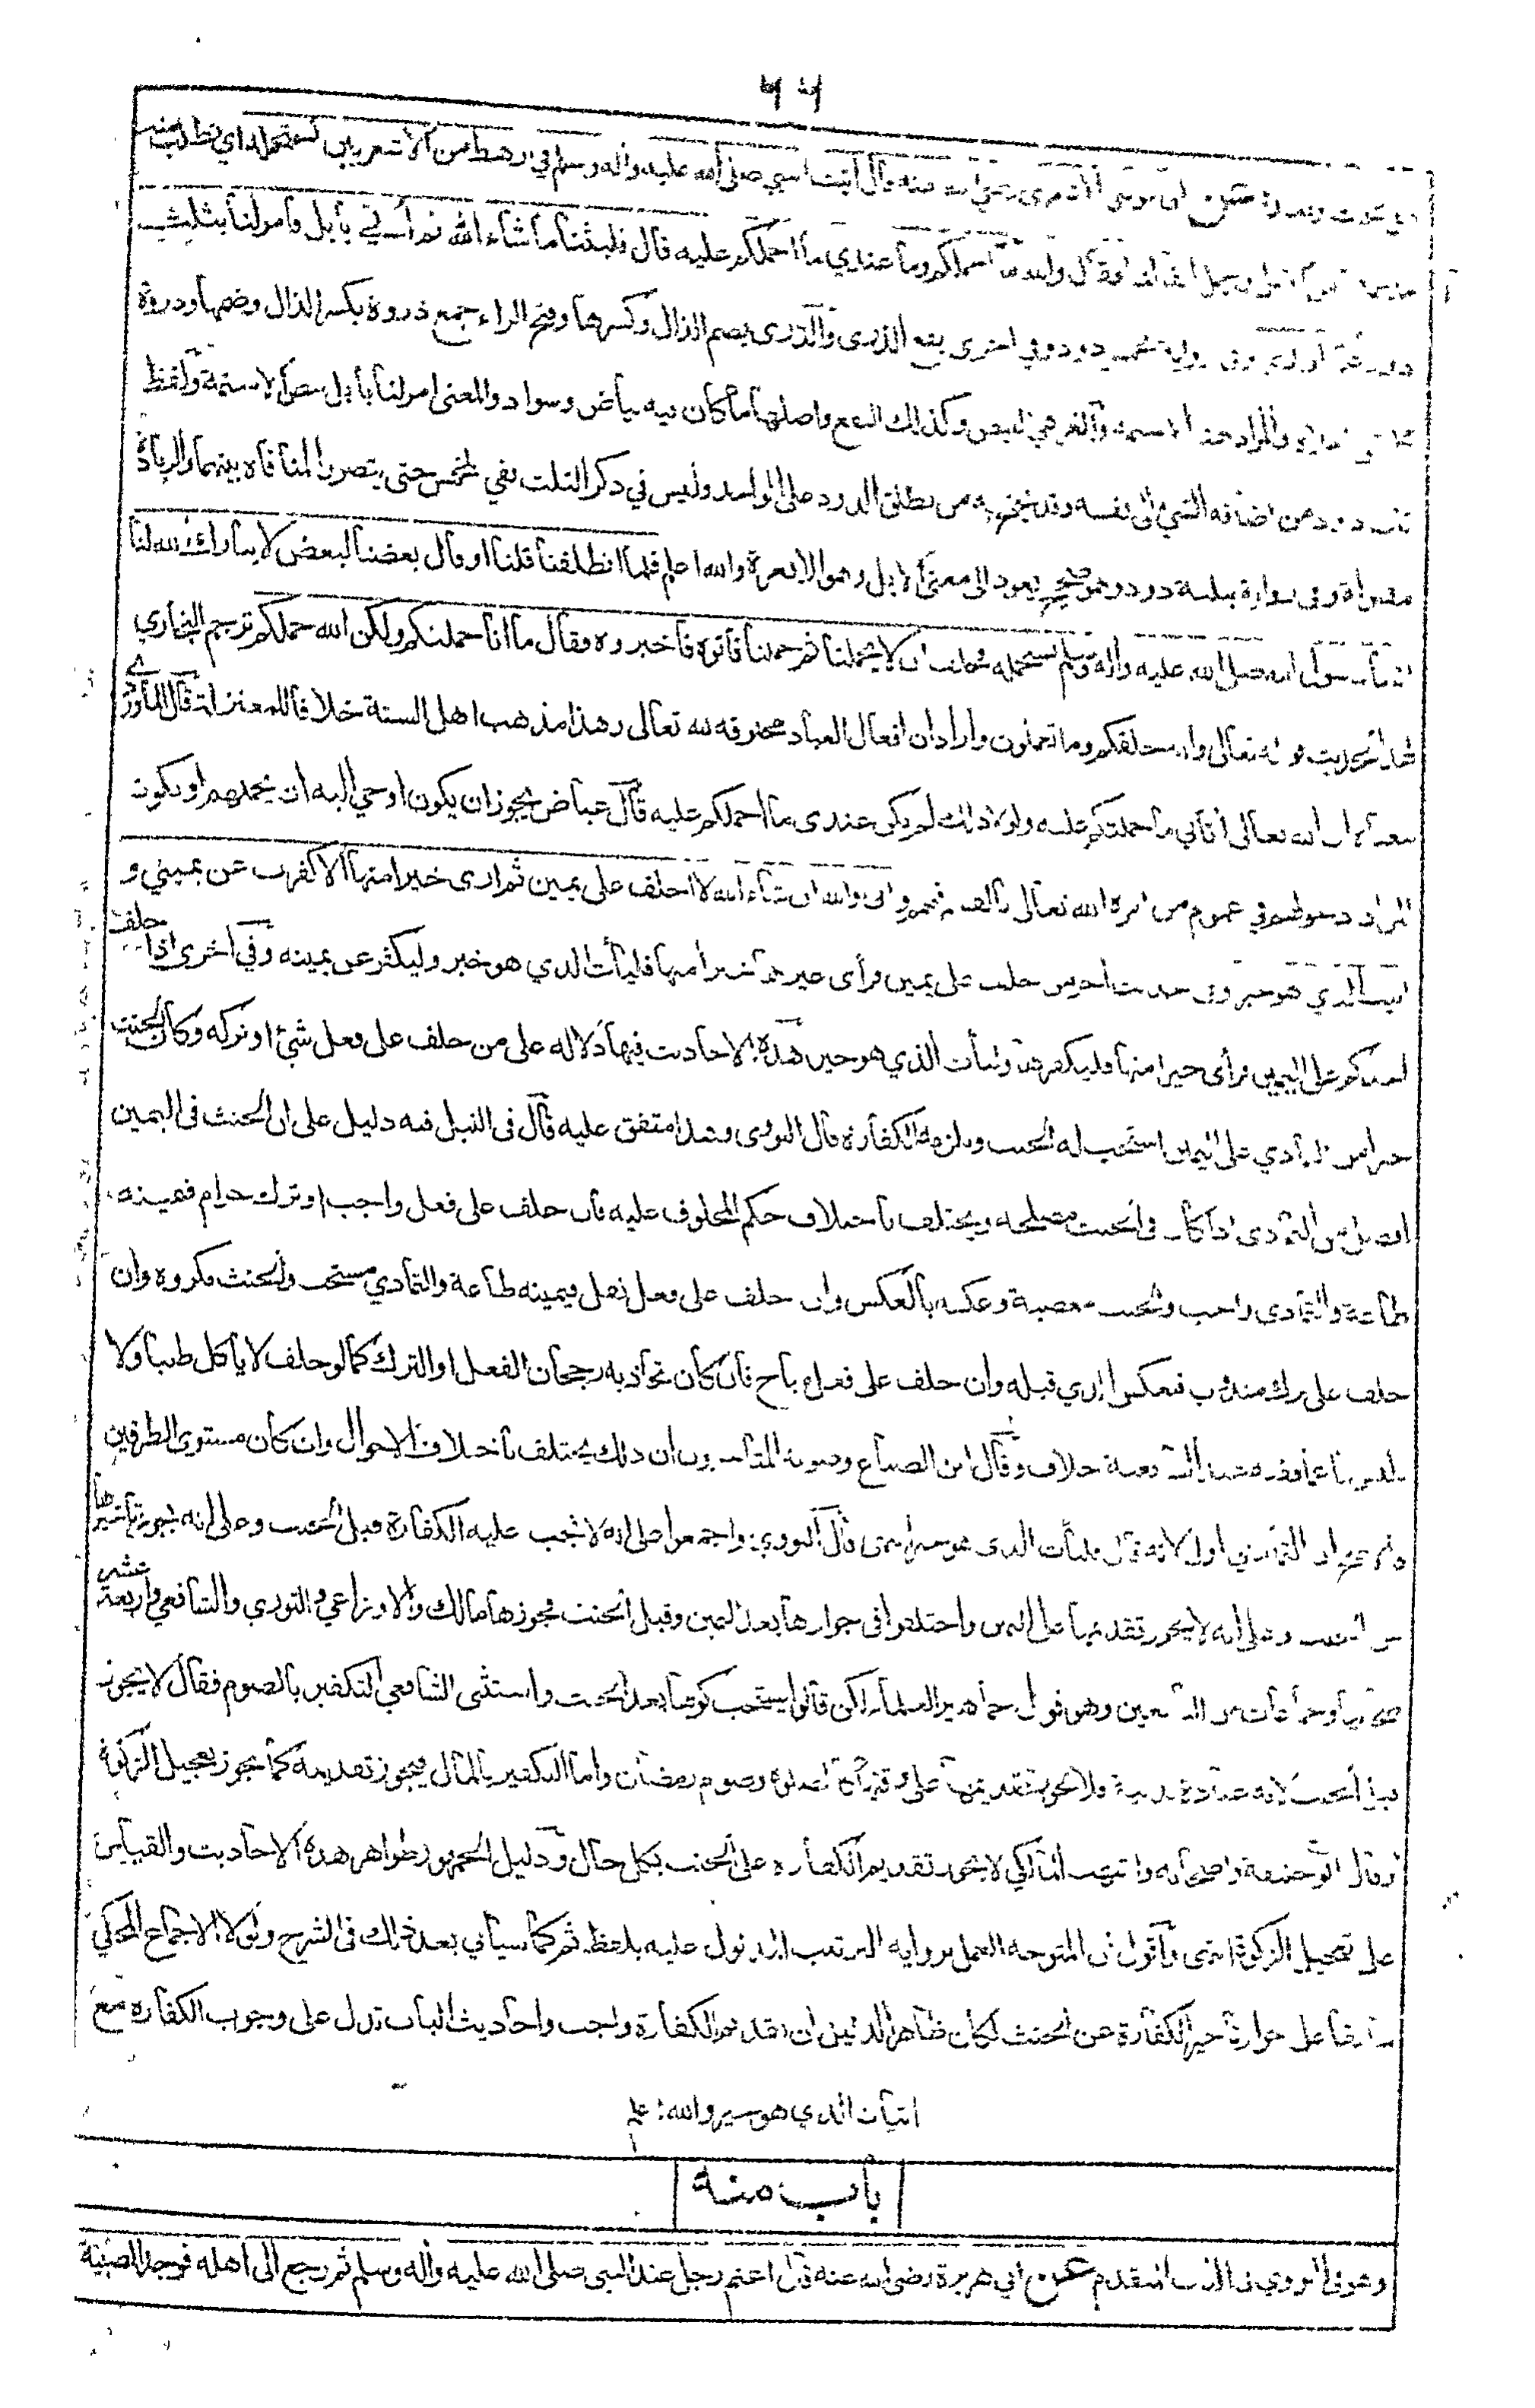 ٦٦
عن ابي موسى الاشعري رضي الله عنه قال اتيت النبي صلى الله عليه واله وسلم في رهط من الاشعريين نستحمله اي نطلب منه
فقال والله لا احملكم وما عندي ما احملكم عليه قال فلبثنا ما شاء الله ثم اُتي بابل فامر لنا بثلث
ذود وفي اخرى بقع الذرى والذرى بضم الذال وكسرها وفتح الراء جمع ذروة بكسر الذال وضمها وذروة
والمراد هنا الاسنمة والغر هي البيض وكذلك البقع واصلها ما كان فيه بياض وسواد والمعنى امر لنا بابل بيض الاسنمة ولفظ
ذود من اضافة الشيء الى نفسه وقد يحتج به من يطلق الذود على الواحد وليس في ذكر الثلث نفي للخمس حتى يتصور المنافاة بينهما والزيادة
وفي رواية بثلثة ذود وهو صحيح يعود الى معنى الابل وهو الابعرة والله اعلم فلما انطلقنا قلنا او قال بعضنا لبعض لا يبارك الله لنا
اتينا رسول الله صلى الله عليه واله وسلم نستحمله فحلف ان لا يحملنا ثم حملنا فاتوه فاخبروه فقال ما انا حملتكم ولكن الله حملكم ترجم البخاري
لهذا الحديث قوله تعالى والله خلقكم وما تعملون واراد ان افعال العباد مخلوقة لله تعالى وهذا مذهب اهل السنة خلافا للمعتزلة قال الماوردي
معناه ان الله تعالى اتاني ما حملتكم عليه ولولا ذلك لم يكن عندي ما احملكم عليه قال عياض يجوز ان يكون اوحي اليه ان يحملهم او يكون
المراد دخولهم في عموم من امره الله تعالى بالقسم فيهم واني والله ان شاء الله لا احلف على يمين ثم ارى خيرا منها الا كفرت عن يميني و
اتيت الذي هو خير وفي حديث اخر من حلف على يمين فرأى غيرها خيرا منها فليأت الذي هو خير وليكفر عن يمينه وفي اخرى اذا حلف
احدكم على اليمين فرأى خيرا منها فليكفرها وليأت الذي هو خير هذه الاحاديث فيها دلالة على من حلف على فعل شيء او تركه وكان الحنث
خيرا من التمادي على اليمين استحب له الحنث ويلزمه الكفارة قال النووي وهذا متفق عليه قال في النيل فيه دليل على ان الحنث في اليمين
افضل من التمادي اذا كان في الحنث مصلحة ويختلف باختلاف حكم المحلوف عليه فان حلف على فعل واجب او ترك حرام فيمينه
طاعة والتمادي واجب والحنث معصية وعكسه بالعكس وان حلف على فعل نفل فيمينه طاعة والتمادي مستحب والحنث مكروه وان
حلف على ترك مندوب فبعكس الذي قبله وان حلف على فعل مباح فان كان يتجاذبه رجحان الفعل او الترك كما لو حلف لا ياكل طيبا ولا
يلبس ناعما ففيه عند الشافعية خلاف وقال ابن الصباغ وصوبه المتاخرون ان ذلك يختلف باختلاف الاحوال وان كان مستوي الطرفين
فالاصح ان التمادي اولى لانه قال فليأت الذي هو خير انتهى قال النووي واجمعوا على انه لا تجب عليه الكفارة قبل الحنث وعلى انه يجوز تاخيرها
عن الحنث وعلى انه لا يجوز تقديمها على اليمين واختلفوا في جوازها بعد اليمين وقبل الحنث فجوزها مالك والاوزاعي والثوري والشافعي واربعة عشر
صحابيا وجماعات من التابعين وهو قول جماهير العلماء لكن قالوا يستحب كونها بعد الحنث واستثنى الشافعي التكفير بالصوم فقال لا يجوز
قبل الحنث لانه عبادة بدنية فلا يجوز تقديمها على وقتها كالصلوة وصوم رمضان واما التكفير بالمال فيجوز تقديمه كما يجوز تعجيل الزكوة
وقال ابو حنيفة واصحابه واشهب المالكي لا يجوز تقديم الكفارة على الحنث بكل حال ودليل الجمهور ظواهر هذه الاحاديث والقياس
على تعجيل الزكوة انتهى واقول ان المتوجه العمل برواية الترتيب المدلول عليه بلفظ ثم كما سياتي بعد ذلك في الشرح ولولا الاجماع المحكي
سابقا على جواز تاخير الكفارة عن الحنث لكان ظاهر الدليل ان تقديم الكفارة واجب واحاديث الباب تدل على وجوب الكفارة مع
اتيان الذي هو خير والله اعلم
باب منه
وهو في النووي في الباب المتقدم عن ابي هريرة رضي الله عنه قال اعتم رجل عند النبي صلى الله عليه واله وسلم ثم رجع الى اهله فوجد الصبية